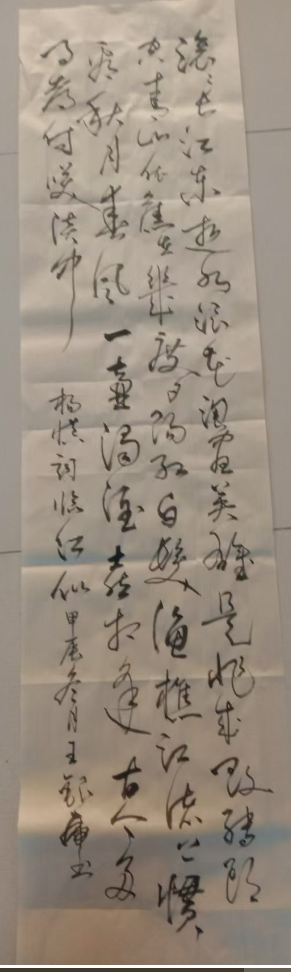 滚々长江东逝水浪花淘尽英雄是非成败转头
空青山依旧在几度夕阳红白发渔樵江渚上惯
看秋月春风一壶浊酒喜相逢古今多
少事都付笑谈中
杨慎词临江仙 甲辰冬月王银书